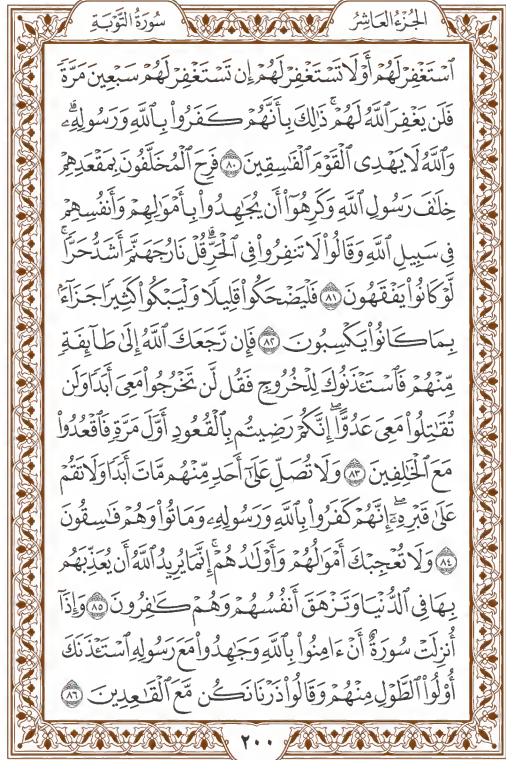 الجزء العاشر
سورة التوبة
ٱسۡتَغۡفِرۡ لَهُمۡ أَوۡ لَا تَسۡتَغۡفِرۡ لَهُمۡ إِن تَسۡتَغۡفِرۡ لَهُمۡ سَبۡعِينَ مَرَّةٗ
فَلَن يَغۡفِرَ ٱللَّهُ لَهُمۡۚ ذَٰلِكَ بِأَنَّهُمۡ كَفَرُواْ بِٱللَّهِ وَرَسُولِهِۦۗ
وَٱللَّهُ لَا يَهۡدِي ٱلۡقَوۡمَ ٱلۡفَٰسِقِينَ ٨٠ فَرِحَ ٱلۡمُخَلَّفُونَ بِمَقۡعَدِهِمۡ
خِلَٰفَ رَسُولِ ٱللَّهِ وَكَرِهُوٓاْ أَن يُجَٰهِدُواْ بِأَمۡوَٰلِهِمۡ وَأَنفُسِهِمۡ
فِي سَبِيلِ ٱللَّهِ وَقَالُواْ لَا تَنفِرُواْ فِي ٱلۡحَرِّۗ قُلۡ نَارُ جَهَنَّمَ أَشَدُّ حَرّٗاۚ
لَّوۡ كَانُواْ يَفۡقَهُونَ ٨١ فَلۡيَضۡحَكُواْ قَلِيلٗا وَلۡيَبۡكُواْ كَثِيرٗا جَزَآءَۢ
بِمَا كَانُواْ يَكۡسِبُونَ ٨٢ فَإِن رَّجَعَكَ ٱللَّهُ إِلَىٰ طَآئِفَةٖ
مِّنۡهُمۡ فَٱسۡتَـٔۡذَنُوكَ لِلۡخُرُوجِ فَقُل لَّن تَخۡرُجُواْ مَعِيَ أَبَدٗا وَلَن
تُقَٰتِلُواْ مَعِيَ عَدُوًّاۖ إِنَّكُمۡ رَضِيتُم بِٱلۡقُعُودِ أَوَّلَ مَرَّةٖ فَٱقۡعُدُواْ
مَعَ ٱلۡخَٰلِفِينَ ٨٣ وَلَا تُصَلِّ عَلَىٰٓ أَحَدٖ مِّنۡهُم مَّاتَ أَبَدٗا وَلَا تَقُمۡ
عَلَىٰ قَبۡرِهِۦٓۖ إِنَّهُمۡ كَفَرُواْ بِٱللَّهِ وَرَسُولِهِۦ وَمَاتُواْ وَهُمۡ فَٰسِقُونَ
٨٤ وَلَا تُعۡجِبۡكَ أَمۡوَٰلُهُمۡ وَأَوۡلَٰدُهُمۡۚ إِنَّمَا يُرِيدُ ٱللَّهُ أَن يُعَذِّبَهُم
بِهَا فِي ٱلدُّنۡيَا وَتَزۡهَقَ أَنفُسُهُمۡ وَهُمۡ كَٰفِرُونَ ٨٥ وَإِذَآ
أُنزِلَتۡ سُورَةٌ أَنۡ ءَامِنُواْ بِٱللَّهِ وَجَٰهِدُواْ مَعَ رَسُولِهِ ٱسۡتَـٔۡذَنَكَ
أُوْلُواْ ٱلطَّوۡلِ مِنۡهُمۡ وَقَالُواْ ذَرۡنَا نَكُن مَّعَ ٱلۡقَٰعِدِينَ ٨٦
٢٠٠